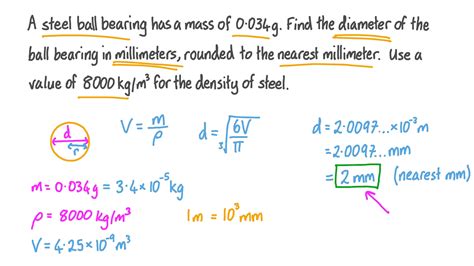 A steel ball bearing has a mass of 0·034g. Find the diameter of the
ball bearing in millimeters, rounded to the nearest millimeter. Use a
value of 8000 kg/m³ for the density of steel.
d
r
V = m/ρ
d = ∛(6V/π)
d = 2·0097... ×10⁻³ m
= 2·0097... mm
= 2 mm (nearest mm)
m = 0·034g = 3·4 × 10⁻⁵ kg
ρ = 8000 kg/m³
1m = 10³ mm
V = 4·25 × 10⁻⁹ m³